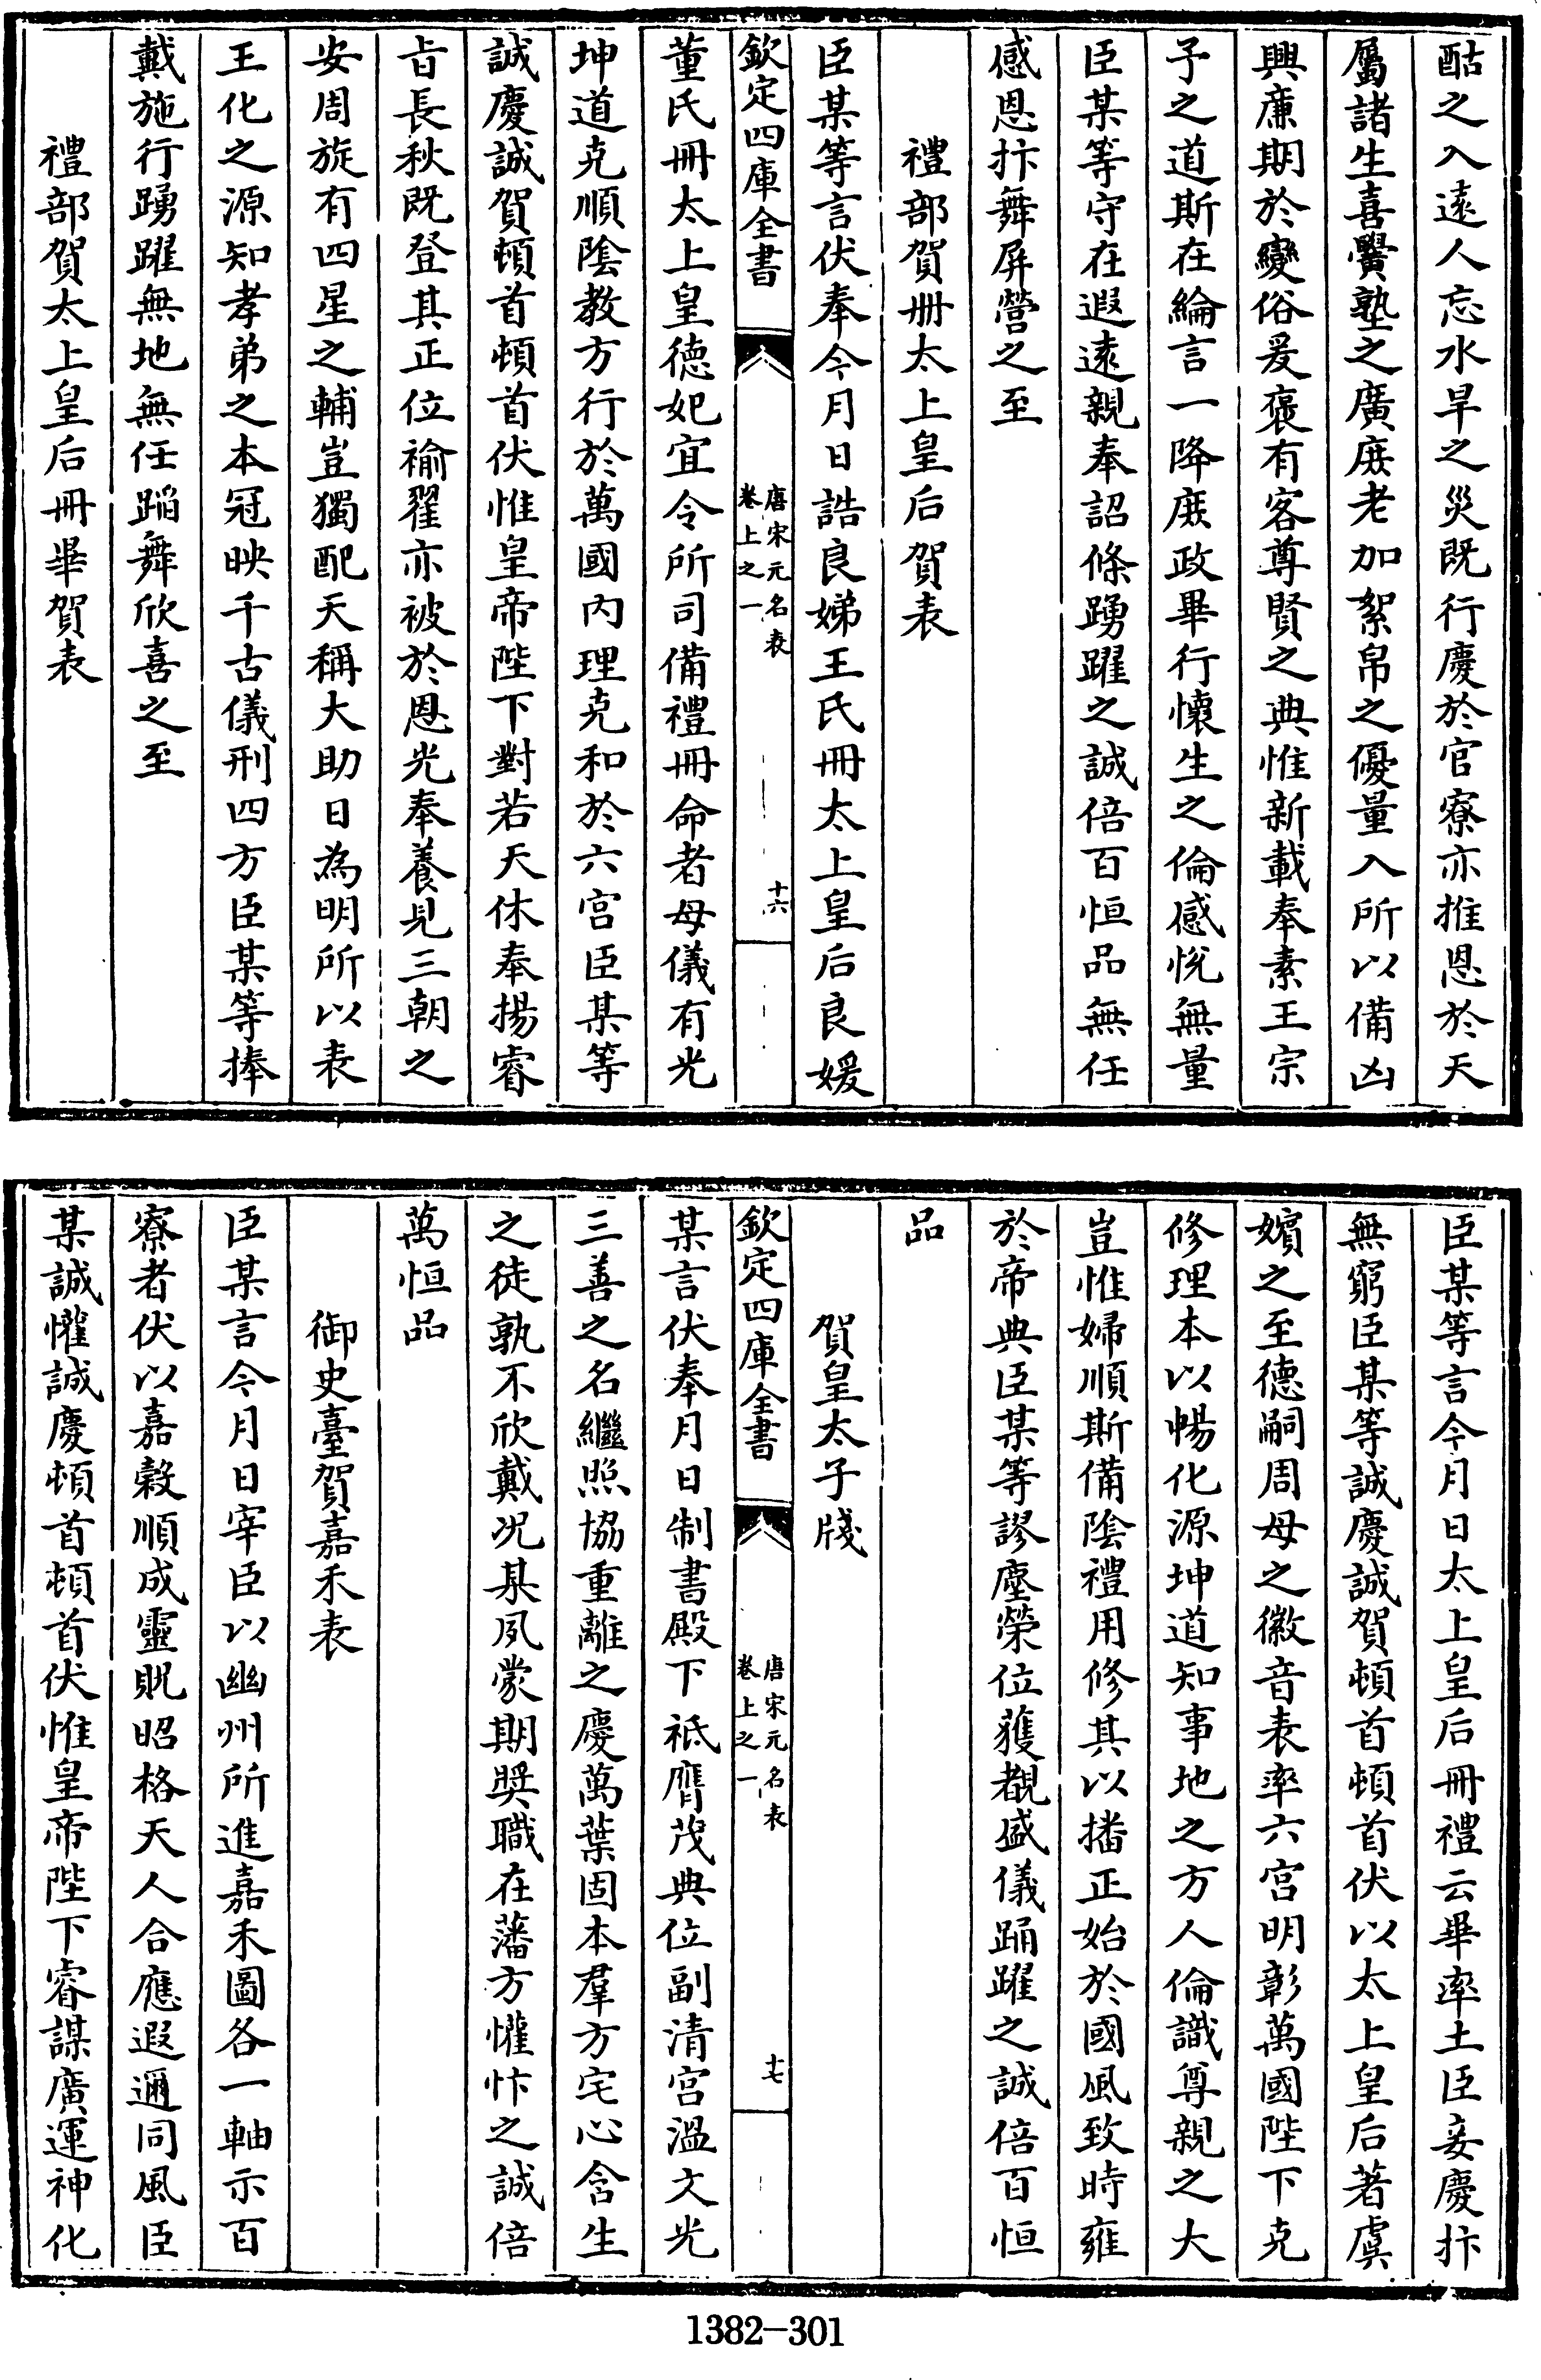 酤之入遠人忘水旱之災既行慶於官寮亦推恩於天
屬諸生喜黌塾之廣庶老加絮帛之優量入所以備凶
興廉期於變俗爰褒有客尊賢之典惟新載奉素王宗
予之道斯在綸言一降庶政畢行懷生之倫感悅無量
臣某等守在遐遠親奉詔條踴躍之誠倍百恒品無任
感恩抃舞屏營之至
禮部賀冊太上皇后賀表
臣某等言伏奉今月日誥良娣王氏冊太上皇后良媛
欽定四庫全書
唐宋元名表
卷上之一
十六
董氏冊太上皇德妃宜令所司備禮冊命者母儀有光
坤道克順陰教方行於萬國內理克和於六宮臣某等
誠慶誠賀頓首頓首伏惟皇帝陛下對若天休奉揚睿
旨長秋既登其正位褕翟亦被於恩光奉養見三朝之
安周旋有四星之輔豈獨配天稱大助日為明所以表
王化之源知孝弟之本冠映千古儀刑四方臣某等捧
戴施行踴躍無地無任蹈舞欣喜之至
禮部賀太上皇后冊畢賀表
臣某等言今月日太上皇后冊禮云畢率土臣妾慶抃
無窮臣某等誠慶誠賀頓首頓首伏以太上皇后著虞
嬪之至德嗣周母之徽音表率六宮明彰萬國陛下克
修理本以暢化源坤道知事地之方人倫識尊親之大
豈惟婦順斯備陰禮用修其以播正始於國風致時雍
於帝典臣某等謬塵榮位獲覩盛儀踊躍之誠倍百恒
品
賀皇太子牋
欽定四庫全書
唐宋元名表
卷上之一
十七
某言伏奉月日制書殿下祗膺茂典位副清宮溫文光
三善之名繼照協重離之慶萬葉固本羣方宅心含生
之徒孰不欣戴況某夙蒙期奬職在藩方懽忭之誠倍
萬恒品
御史臺賀嘉禾表
臣某言今月日宰臣以幽州所進嘉禾圖各一軸示百
寮者伏以嘉穀順成靈貺昭格天人合應遐邇同風臣
某誠懽誠慶頓首頓首伏惟皇帝陛下睿謀廣運神化
1382-301